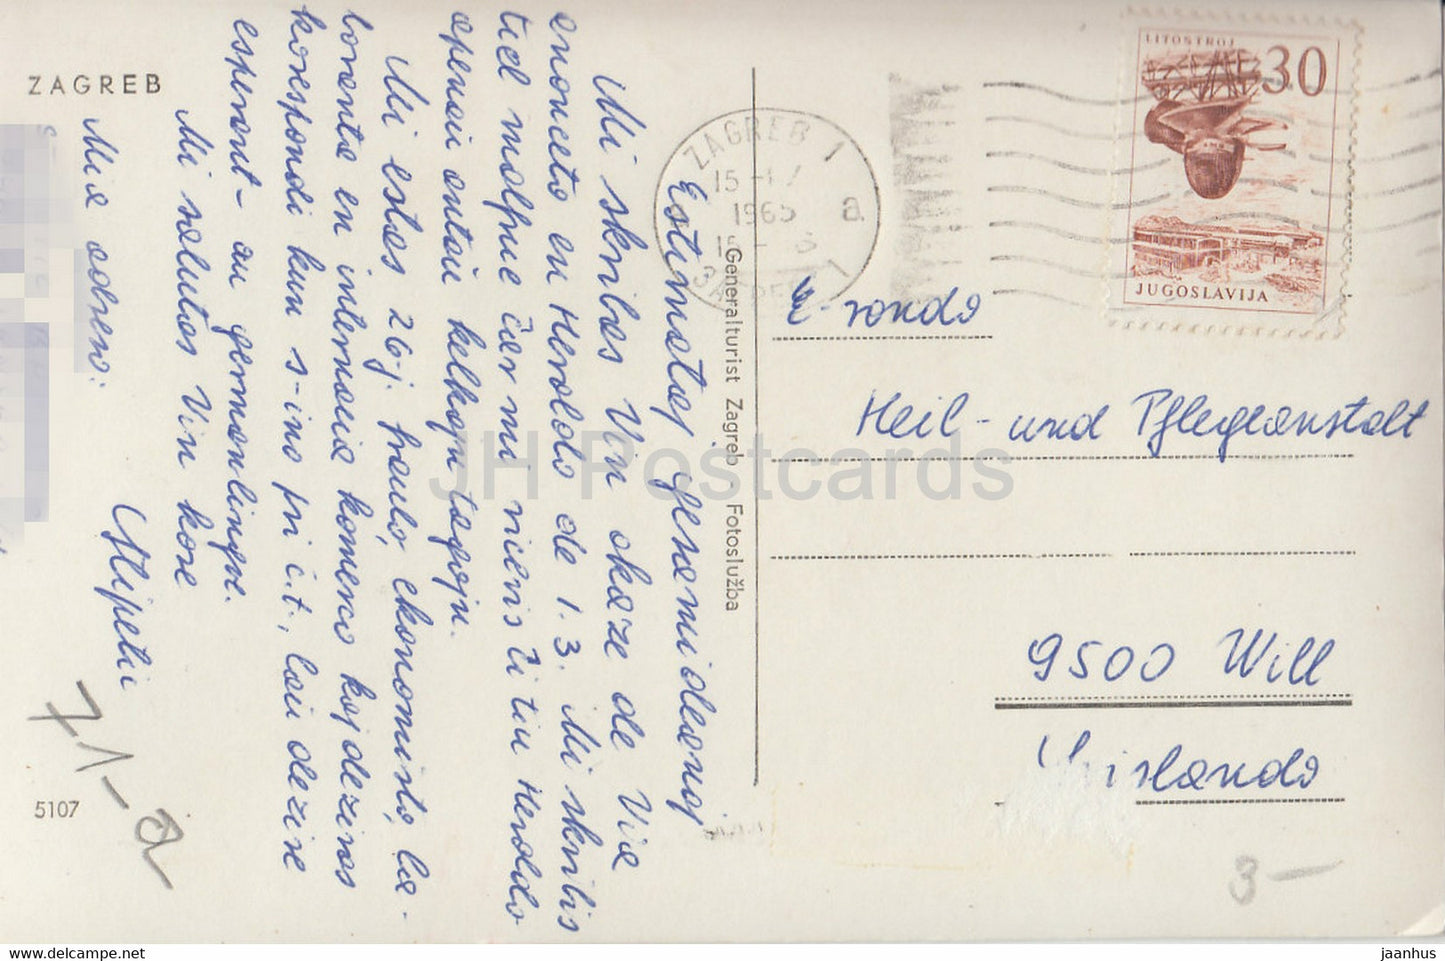 ZAGREB
Estimataj gesamideanoj
Mi skribas Vin okaze de Via
anonceto en Heroldo de 1.3. Mi skribis
tiel malfrue ĉar mi ricevis ĉi tiu Heroldo
apenaŭ antaŭ kelkajn tagojn.
Mi estas 26-j. fraulo, ekonomisto, la-
boranta en internacia komerco kaj deziras
korespondi kun s-ino pri ĉ.t., laŭ dezire
esperant- au germanlingve.
Mi salutas Vin kore
Mia adreso:
5107
71-a
Generalturist Zagreb - Fotoslužba
ZAGREB 1
a
15
1965
LITOSTROJ
30
JUGOSLAVIJA
Heil- und Pflegeanstalt
9500 Will
Svislando
3-
JH Postcards
www.delcampe.net
jaanhus